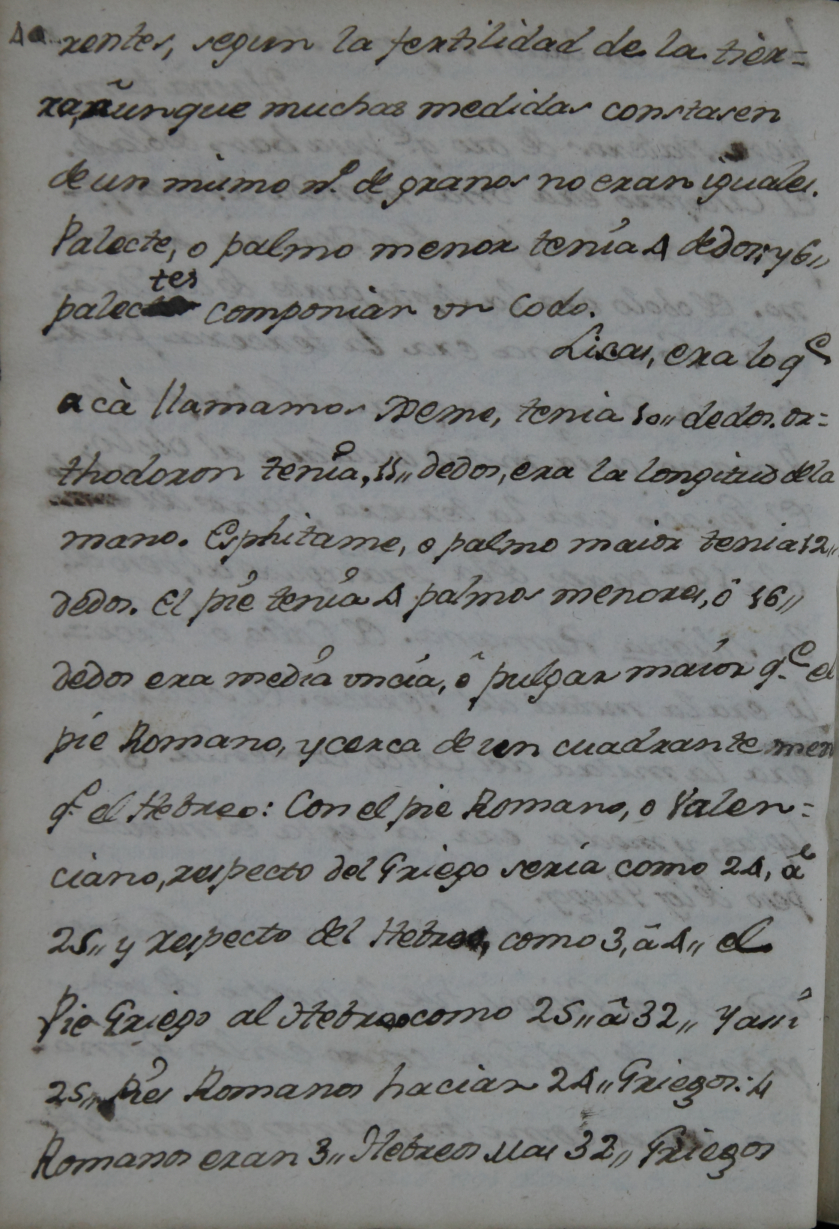 rentes, segun la fertilidad de la tier=
ra, aunque muchas medidas constasen
de un mismo nº. de granos no eran iguales.
Palecte, o palmo menor tenía 4 dedos; y 6,,
palectes componian un Codo.
Licas, era lo q^e
acà llamamos Xeme, tenia 10,, dedos. or=
thodoron tenía, 11,, dedos, era la longitud dela
mano. Esphitame, o palmo maior tenia 12,,
dedos. El pié tenía 4 palmos menores, ô 16,,
dedos era media uncía, ô pulgar maíor q.^e el
pie Romano, y cerca de un cuadrante men
q.^e el Hebreo: Con el pie Romano, o Valen=
ciano, respecto del Griego sería como 24, â
25,, y respecto del Hebreo, como 3, â 4,, el
Pie Griego al Hebreo como 25,, â 32,, y assi
25,, Pies Romanos hacian 24,, Griegos: 4
Romanos eran 3,, Hebreos Mas 32,, Griegos